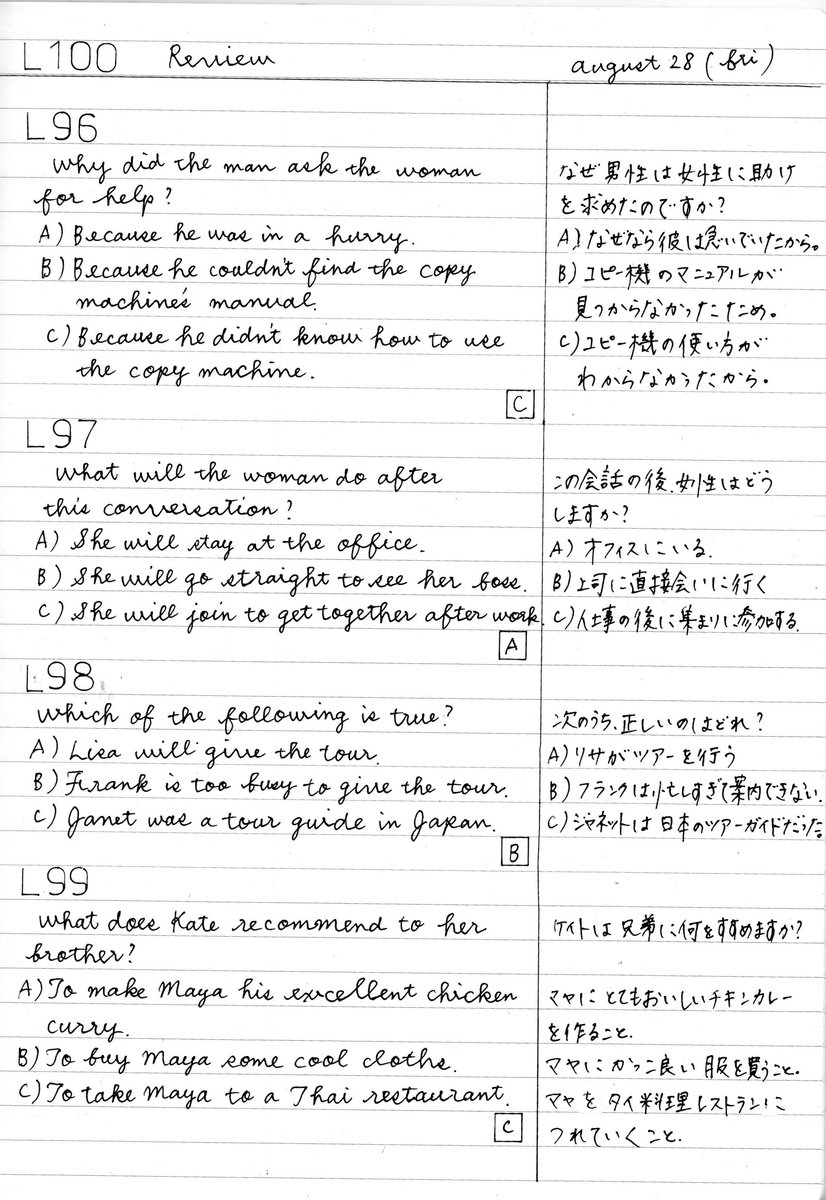 L100 Review august 28 (fri)
L96
Why did the man ask the woman
for help?
A) Because he was in a hurry.
B) Because he couldn't find the copy
machine's manual.
C) Because he didn't know how to use
the copy machine.
C
なぜ男性は女性に助け
を求めたのですか?
A) なぜなら彼は急いでいたから。
B) コピー機のマニュアルが
見つからなかったため。
C) コピー機の使い方が
わからなかったから。
L97
What will the woman do after
this conversation?
A) She will stay at the office.
B) She will go straight to see her boss.
C) She will join to get together after work.
A
この会話の後、女性はどう
しますか?
A) オフィスにいる.
B) 上司に直接会いに行く
C) 仕事の後に集まりに参加する.
L98
Which of the following is true?
A) Lisa will give the tour.
B) Frank is too busy to give the tour.
C) Janet was a tour guide in Japan.
B
次のうち、正しいのはどれ?
A) リサがツアーを行う
B) フランクは忙しすぎて案内できない.
C) ジャネットは日本のツアーガイドだった.
L99
What does Kate recommend to her
brother?
A) To make Maya his excellent chicken
curry.
B) To buy Maya some cool cloths.
C) To take Maya to a Thai restaurant.
C
ケイトは兄弟に何をすすめますか?
マヤにとてもおいしいチキンカレー
を作ること.
マヤにかっこ良い服を買うこと.
マヤをタイ料理レストランに
つれていくこと.